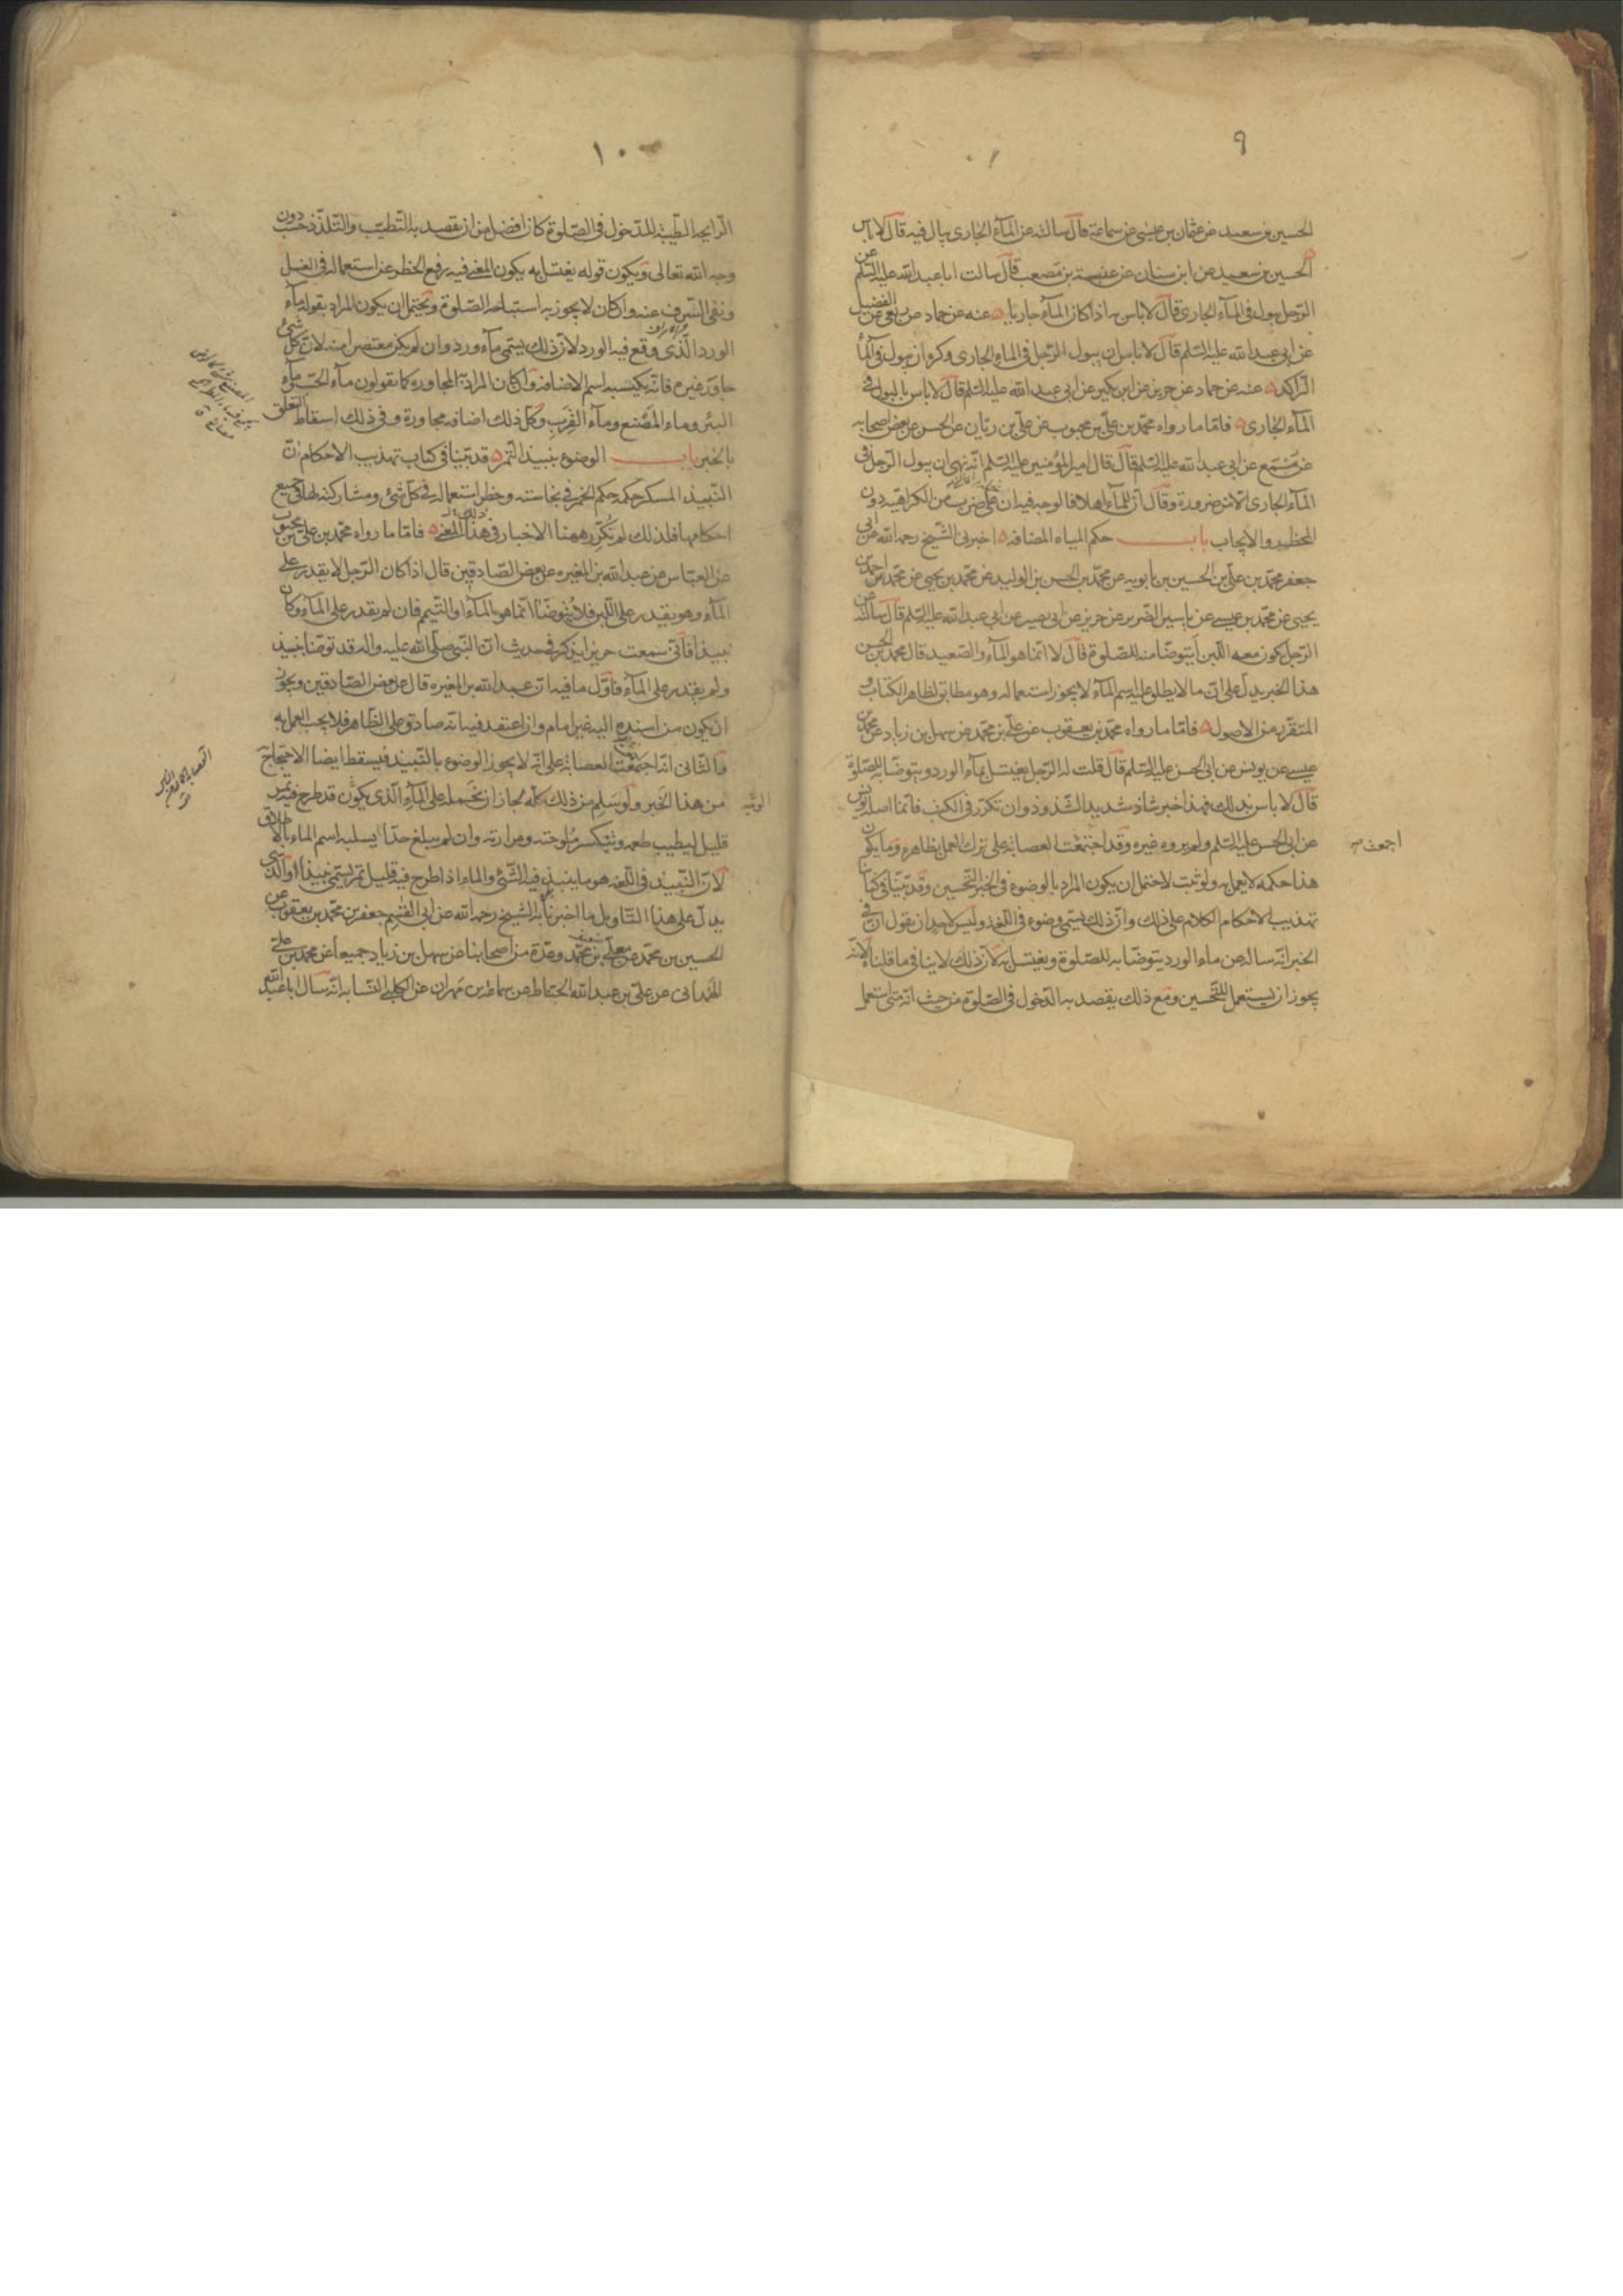 ٩
الحسين بن سعيد عن عثمان بن عيسى عن سماعة قال سالته عن المآء الجارى يبال فيه قال لا باس
الحسين بن سعيد عن ابن سنان عن عنبسة بن مصعب قال سالت ابا عبد الله عليه السلم عن
الرّجل يبول فى المآء الجارى قال لا باس به اذا كان المآء جاريا ه عنه عن حماد عن ربعى عن الفضيل
عن ابى عبد الله عليه السّلم قال لا باس ان يبول الرّجل فى الماء الجارى وكره ان يبول فى المآء
الرّاكد ه عنه عن حماد عن حريز عن ابن بكير عن ابى عبد الله عليه السّلم قال لا باس بالبول فى
المآء الجارى ه فامّا ما رواه محمّد بن علىّ بن محبوب عن علىّ بن ريّان عن الحسن عن بعض اصحابه
عن مسمع عن ابى عبد الله عليه السّلم قال قال امير المؤمنين عليه السّلم انّه نهى ان يبول الرّجل فى
المآء الجارى الّا من ضرورة وقال انّ للمآء اهلا فالوجه فيه ان على ضرب من الكراهيّه دون
الحظر والايجاب باب حكم المياه المضافه ه اخبرنى الشّيخ رحمه الله عن ابى
جعفر محمّد بن علىّ بن الحسين بن بابويه عن محمّد بن الحسن بن الوليد عن محمّد بن يحيى عن محمّد بن احمد بن
يحيى عن محمّد بن عيسى عن ياسين الضّرير عن حريز عن ابى بصير عن ابى عبد الله عليه السّلم قال سالته عن
الرّجل يكون معه اللّبن أيتوضّا منه للصّلوة قال لا انّما هو المآء والصّعيد قال محمّد بن الحسن
هذا الخبر يدلّ على انّ ما لا يطلق عليه اسم المآء لا يجوز استعماله وهو مطابق لظاهر الكتاب و
المتقرّر من الاصول ه فامّا ما رواه محمّد بن يعقوب عن علىّ بن محمّد عن سهل بن زياد عن محمّد بن
عيسى عن يونس عن ابى الحسن عليه السّلم قال قلت له الرّجل يغتسل بمآء الورد ويتوضّا به للصّلوة
قال لا باس بذلك فهذا خبر شاذ شديد الشّذوذ وان تكرّر فى الكتب فانّما اصله يونس
عن ابى الحسن عليه السّلم ولم يروه غيره وقد اجتمعت العصابة على ترك العمل بظاهره وما يكون
اجمعت
هذا حكمه لا يعمل به ولو ثبت لاحتمل ان يكون المراد بالوضوء فى الخبر التّحسين وقد بيّنّا فى كتاب
تهذيب الاحكام الكلام على ذلك وانّ ذلك يسمّى وضوء فى اللّغة وليس لاحد ان يقول انّ فى
الخبر انّه ساله عن ماء الورد يتوضّا به للصّلوة ويغتسل به لانّ ذلك لا ينافى ما قلناه لانّه
يجوز ان يستعمل للتّحسين ومع ذلك يقصد به الدّخول فى الصّلوة من حيث انّه متى استعمل
١٠
الرّايحه الطّيّبة للدّخول فى الصّلوة كان افضل من ان يقصد به التّطيّب والتّلذّذ حسب دون
وجه الله تعالى ويكون قوله يغتسل به يكون المعنى فيه رفع الحظر عن استعماله فى الغسل
ونفى السّرف عنه وان كان لا يجوز به استباحة الصّلوة ويحتمل ان يكون المراد بقوله مآء
الورد الّذى وقع فيه الورد لانّ ذلك يسمّى مآء ورد وان لم يكن معتصرا منه لانّ كلّ شئ
جاور غيره فانّه يكسبه اسم الاضافه وان كان المراد به المجاوره كما يقولون مآء الحبّ ومآء
البئر وماء المصنع ومآء القرب وكلّ ذلك اضافه مجاورة وفى ذلك اسقاط التعلّق
بالخبر باب الوضوء بنبيذ التّمر ه قد بيّنّا فى كتاب تهذيب الاحكام انّ
النّبيذ المسكر حكمه حكم الخمر فى نجاسته وحظر استعماله فى كلّ شئ ومشاركته لها فى جميع
احكامها فلذلك لم نكرّر ههنا الاخبار فى هذا المعنى ه فامّا ما رواه محمّد بن على بن محبوب
عن العبّاس عن عبد الله بن المغيره عن بعض الصّادقين قال اذا كان الرّجل لا يقدر على
المآء وهو يقدر على اللّبن فلا يتوضّا انّما هو المآء او التّيمم فان لم يقدر على المآء وكان
نبيذا فانّى سمعت حريزا يذكر فى حديث انّ النّبى صلّى الله عليه واله قد توضّا بنبيذ
ولم يقدر على المآء فاوّل ما فيه انّ عبد الله بن المغيره قال عن بعض الصّادقين ويجوز
ان يكون من اسنده اليه غير امام وان اعتقد فيه انّه صادق على الظّاهر فلا يجب العمل به
والثّانى انّه اجتمعت العصابة على انّه لا يجوز الوضوء بالنّبيذ فيسقط ايضا الاحتجاج به
من هذا الخبر ولو سلم من ذلك كلّه لجاز ان نحمله على المآء الّذى يكون قد طرح فيه تمر
قليل ليطيب طعمه وتنكسر ملوحته ومرارته وان لم يبلغ حدّا يسلبه اسم الماء بالاطلاق
لانّ النّبيذ فى اللّغه هو ما ينبذ فيه الشّئ والماء اذا طرح فيه قليل تمر يسمّى نبيذا والّذى
يدلّ على هذا التّاويل ما اخبرنا به الشّيخ رحمه الله عن ابى القسم جعفر بن محمّد بن يعقوب عن
الحسين بن محمّد عن معلّى بن محمّد وعدّة من اصحابنا عن سهل بن زياد جميعا عن محمّد بن على
الهمدانى عن علىّ بن عبد الله الحنّاط عن سماعة بن مهران عن الكلبى النّسابه انّه سال ابا عبد الله